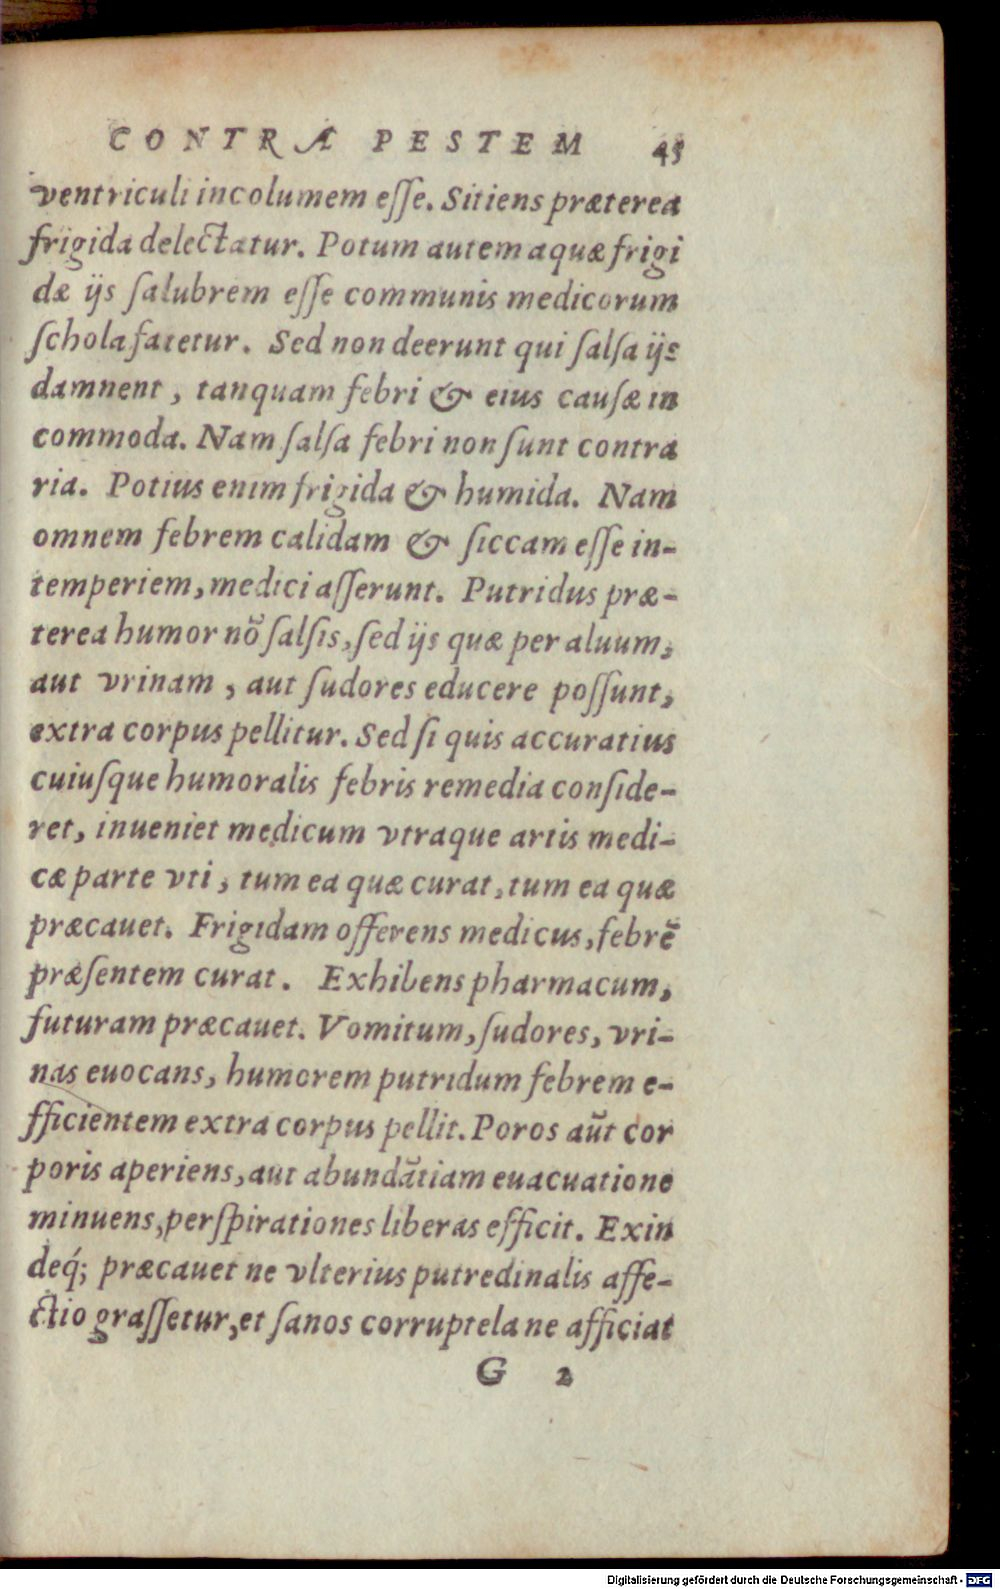 CONTRA PESTEM 45
ventriculi incolumem eſſe. Sitiens præterea
frigida delectatur. Potum autem aquæ frigi
dæ ijs ſalubrem eſſe communis medicorum
ſchola fatetur. Sed non deerunt qui ſalſa ijs
damnent, tanquam febri & eius cauſæ in
commoda. Nam ſalſa febri non ſunt contra
ria. Potius enim frigida & humida. Nam
omnem febrem calidam & ſiccam eſſe in-
temperiem, medici aſſerunt. Putridus præ-
terea humor nõ ſalſis, ſed ijs quæ per aluum,
aut vrinam, aut ſudores educere poſſunt,
extra corpus pellitur. Sed ſi quis accuratius
cuiuſque humoralis febris remedia conſide-
ret, inueniet medicum vtraque artis medi-
cæ parte vti, tum ea quæ curat, tum ea quæ
præcauet. Frigidam offerens medicus, febrẽ
præſentem curat. Exhibens pharmacum,
futuram præcauet. Vomitum, ſudores, vri-
nas euocans, humorem putridum febrem e-
fficientem extra corpus pellit. Poros aũt cor
poris aperiens, aut abundãtiam euacuatione
minuens, perſpirationes liberas efficit. Exin
deq́; præcauet ne vlterius putredinalis affe-
ctio graſſetur, et ſanos corruptela ne afficiat
G 2
Digitalisierung gefördert durch die Deutsche Forschungsgemeinschaft - DFG